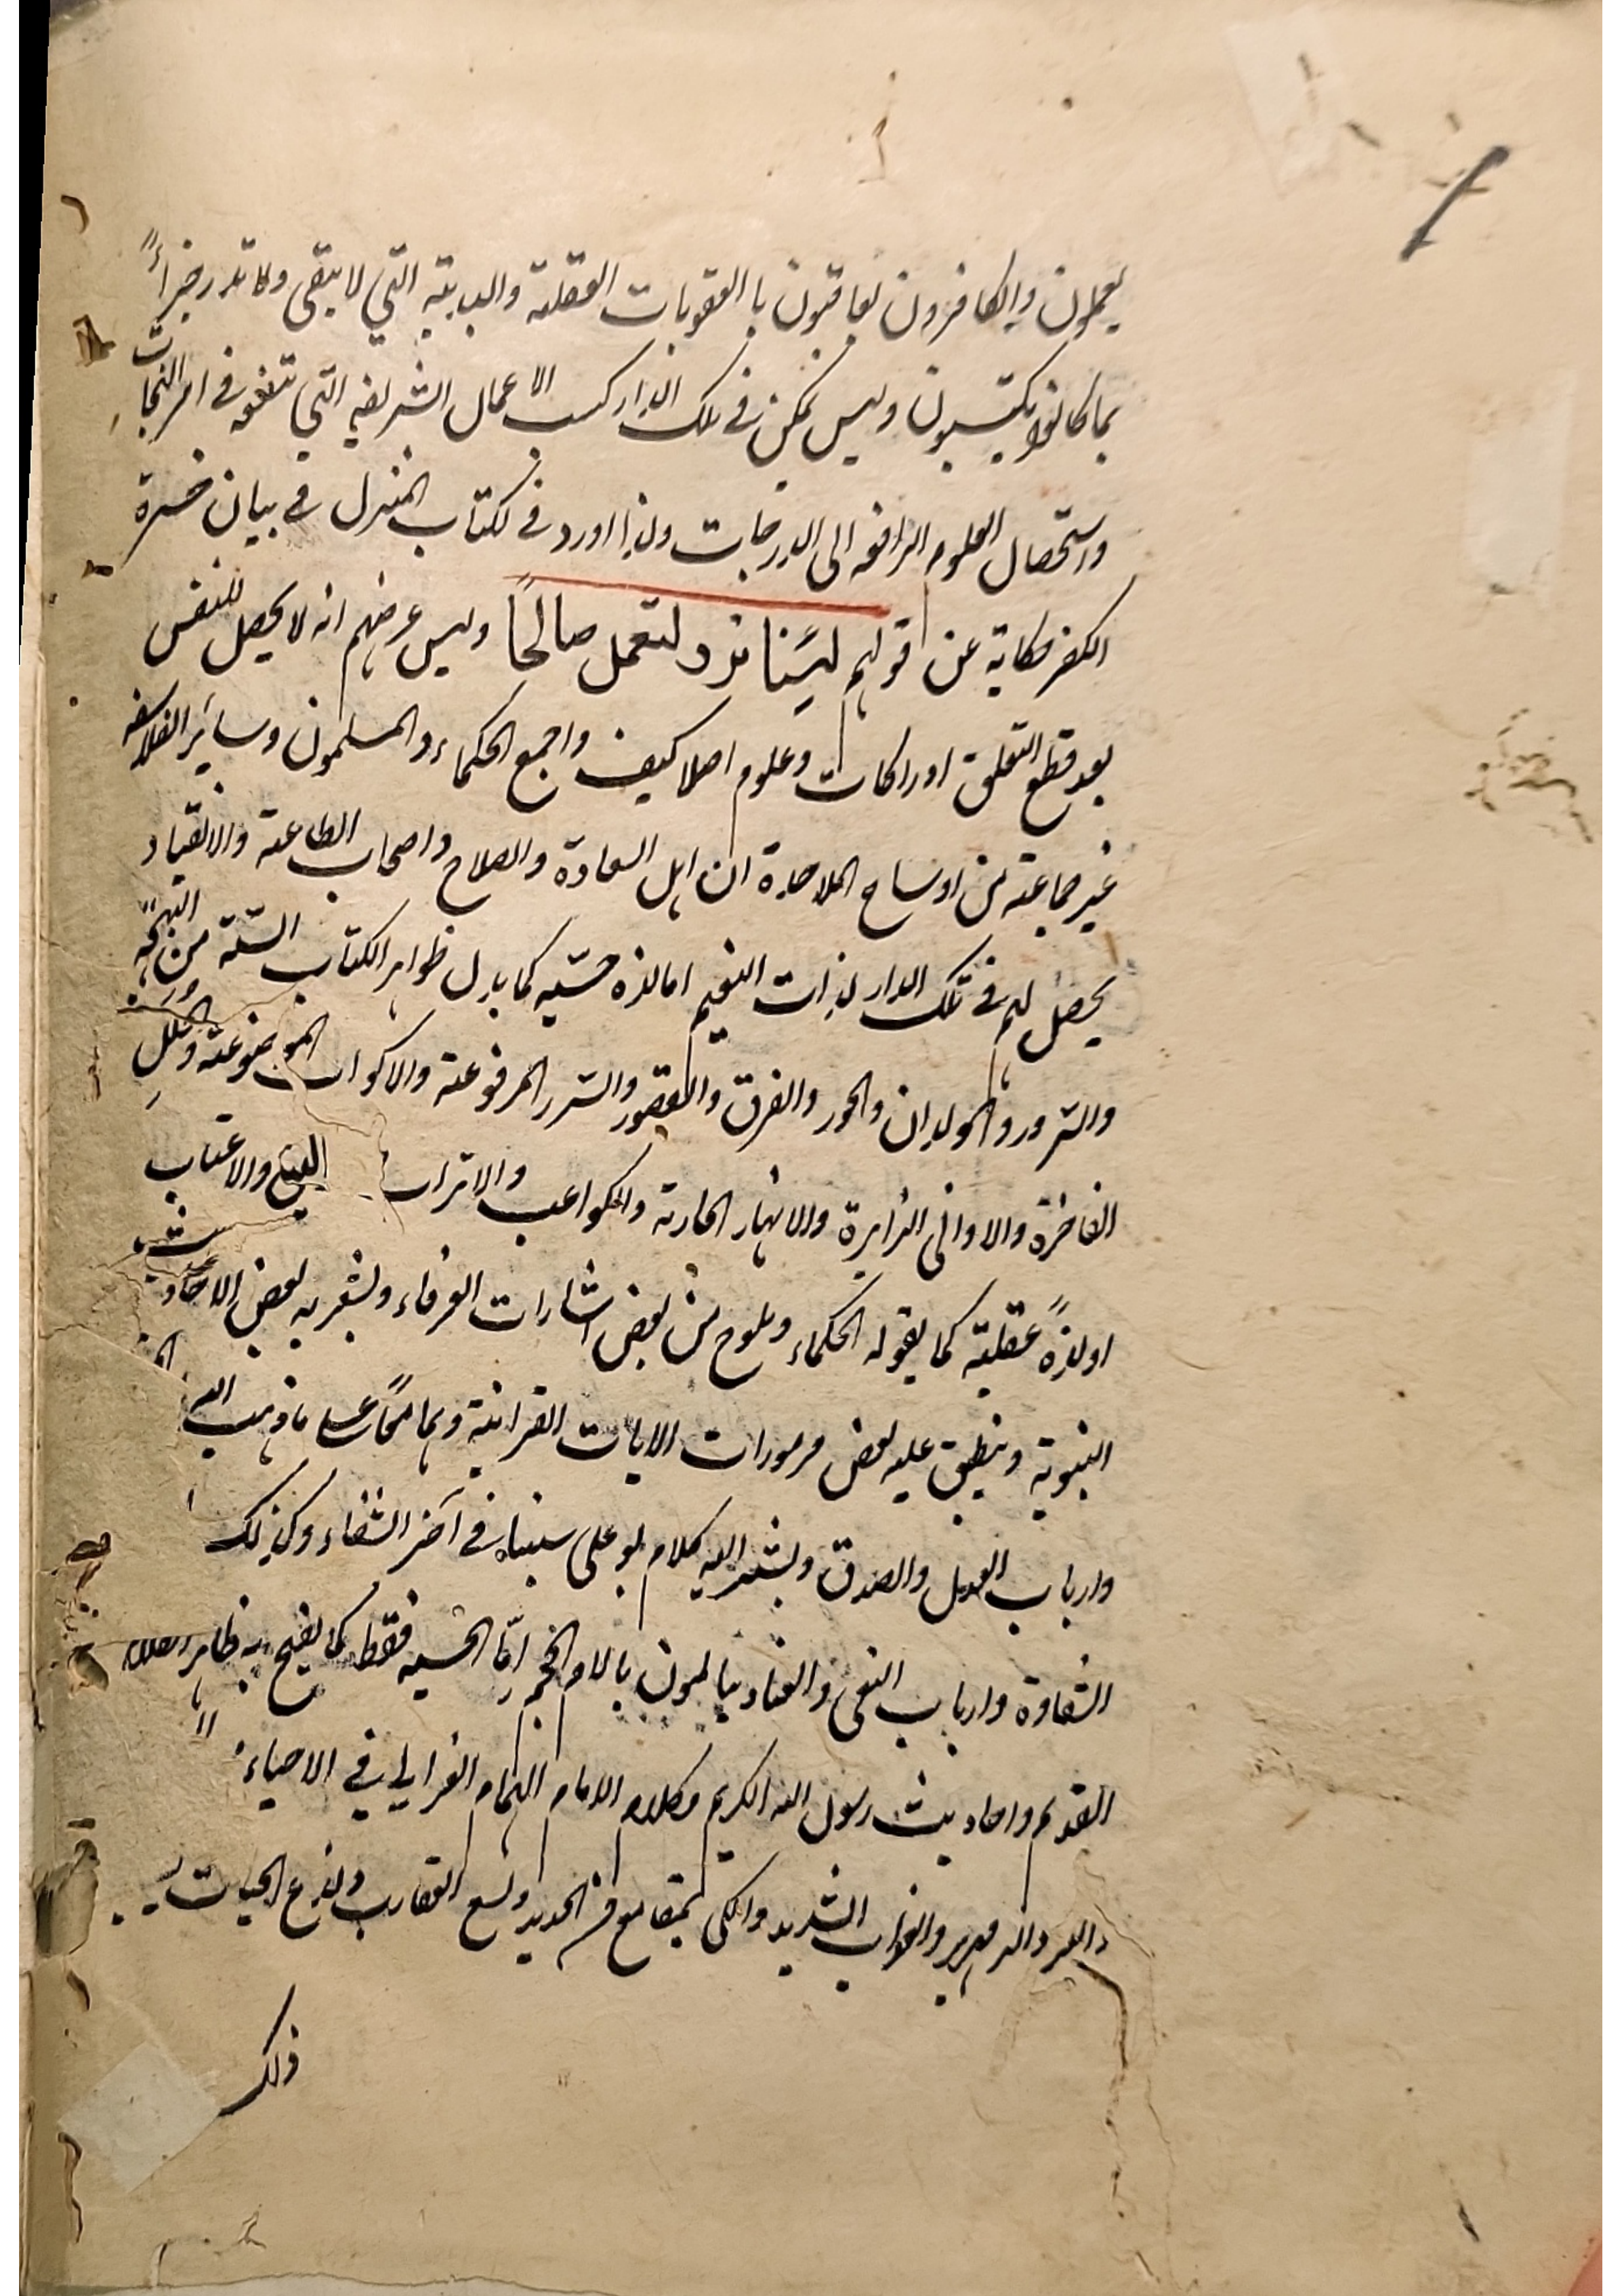 يعملون والكافرون يعاقبون با العقوبات العقلية والبدنية التي لا تبقى ولا تذر جزاءً
بما كانوا يكتسبون وليس يمكن في تلك الدار كسب الاعمال الشريفه التي تنفعه في امر النجات
واستحصال العلوم الرافعه الى الدرجات ولذا اورد في الكتاب المنزل في بيان حسرة
الكفر حكاية عن اقولهم ليتنا نرد لنعمل صالحًا وليس غرضهم انه لا يحصل للنفس
بعد قطع التعلق ادراكات وعلوم اصلا كيف واجمع الحكماء والمسلمون وسائر الفلاسفه
غير جماعة من اوساخ الملاحدة ان اهل السعادة والصلاح واصحاب الطاعة والانقياد
يحصل لهم في تلك الدار لذات النعيم اما لذه حسيه كما يدل ظواهر الكتاب السنة من البهجة
والسرور والولدان والحور والغرف والقصور والسرر المرفوعة والاكواب الموضوعة والحلل
الفاخرة والاواني الزاهرة والانهار الجارية والكواعب والاتراب والاعناب
او لذةً عقلية كما يقوله الحكماء ويلوح من بعض اشارات العرفاء ويشعر به بعض الاحاديث
النبوية وينطبق عليه بعض مرموزات الايات القرانية وهما معًا على ما ذهب اليه
وارباب العدل والصدق ويشير اليه كلام بو على سينا في آخر الشفاء وكذلك
الشقاوة وارباب البغى والعناد يتالمون بالام الجحيم امّا الحسيه فقط كما يفصح به ظاهر كلام
القديم واحاديث رسول الله الكريم وكلام الامام الهمام الغزالي في الاحياء
والزمهرير والعذاب الشديد والكى بمقامع من الحديد ولسع العقارب ولدغ الحيات
ذلك